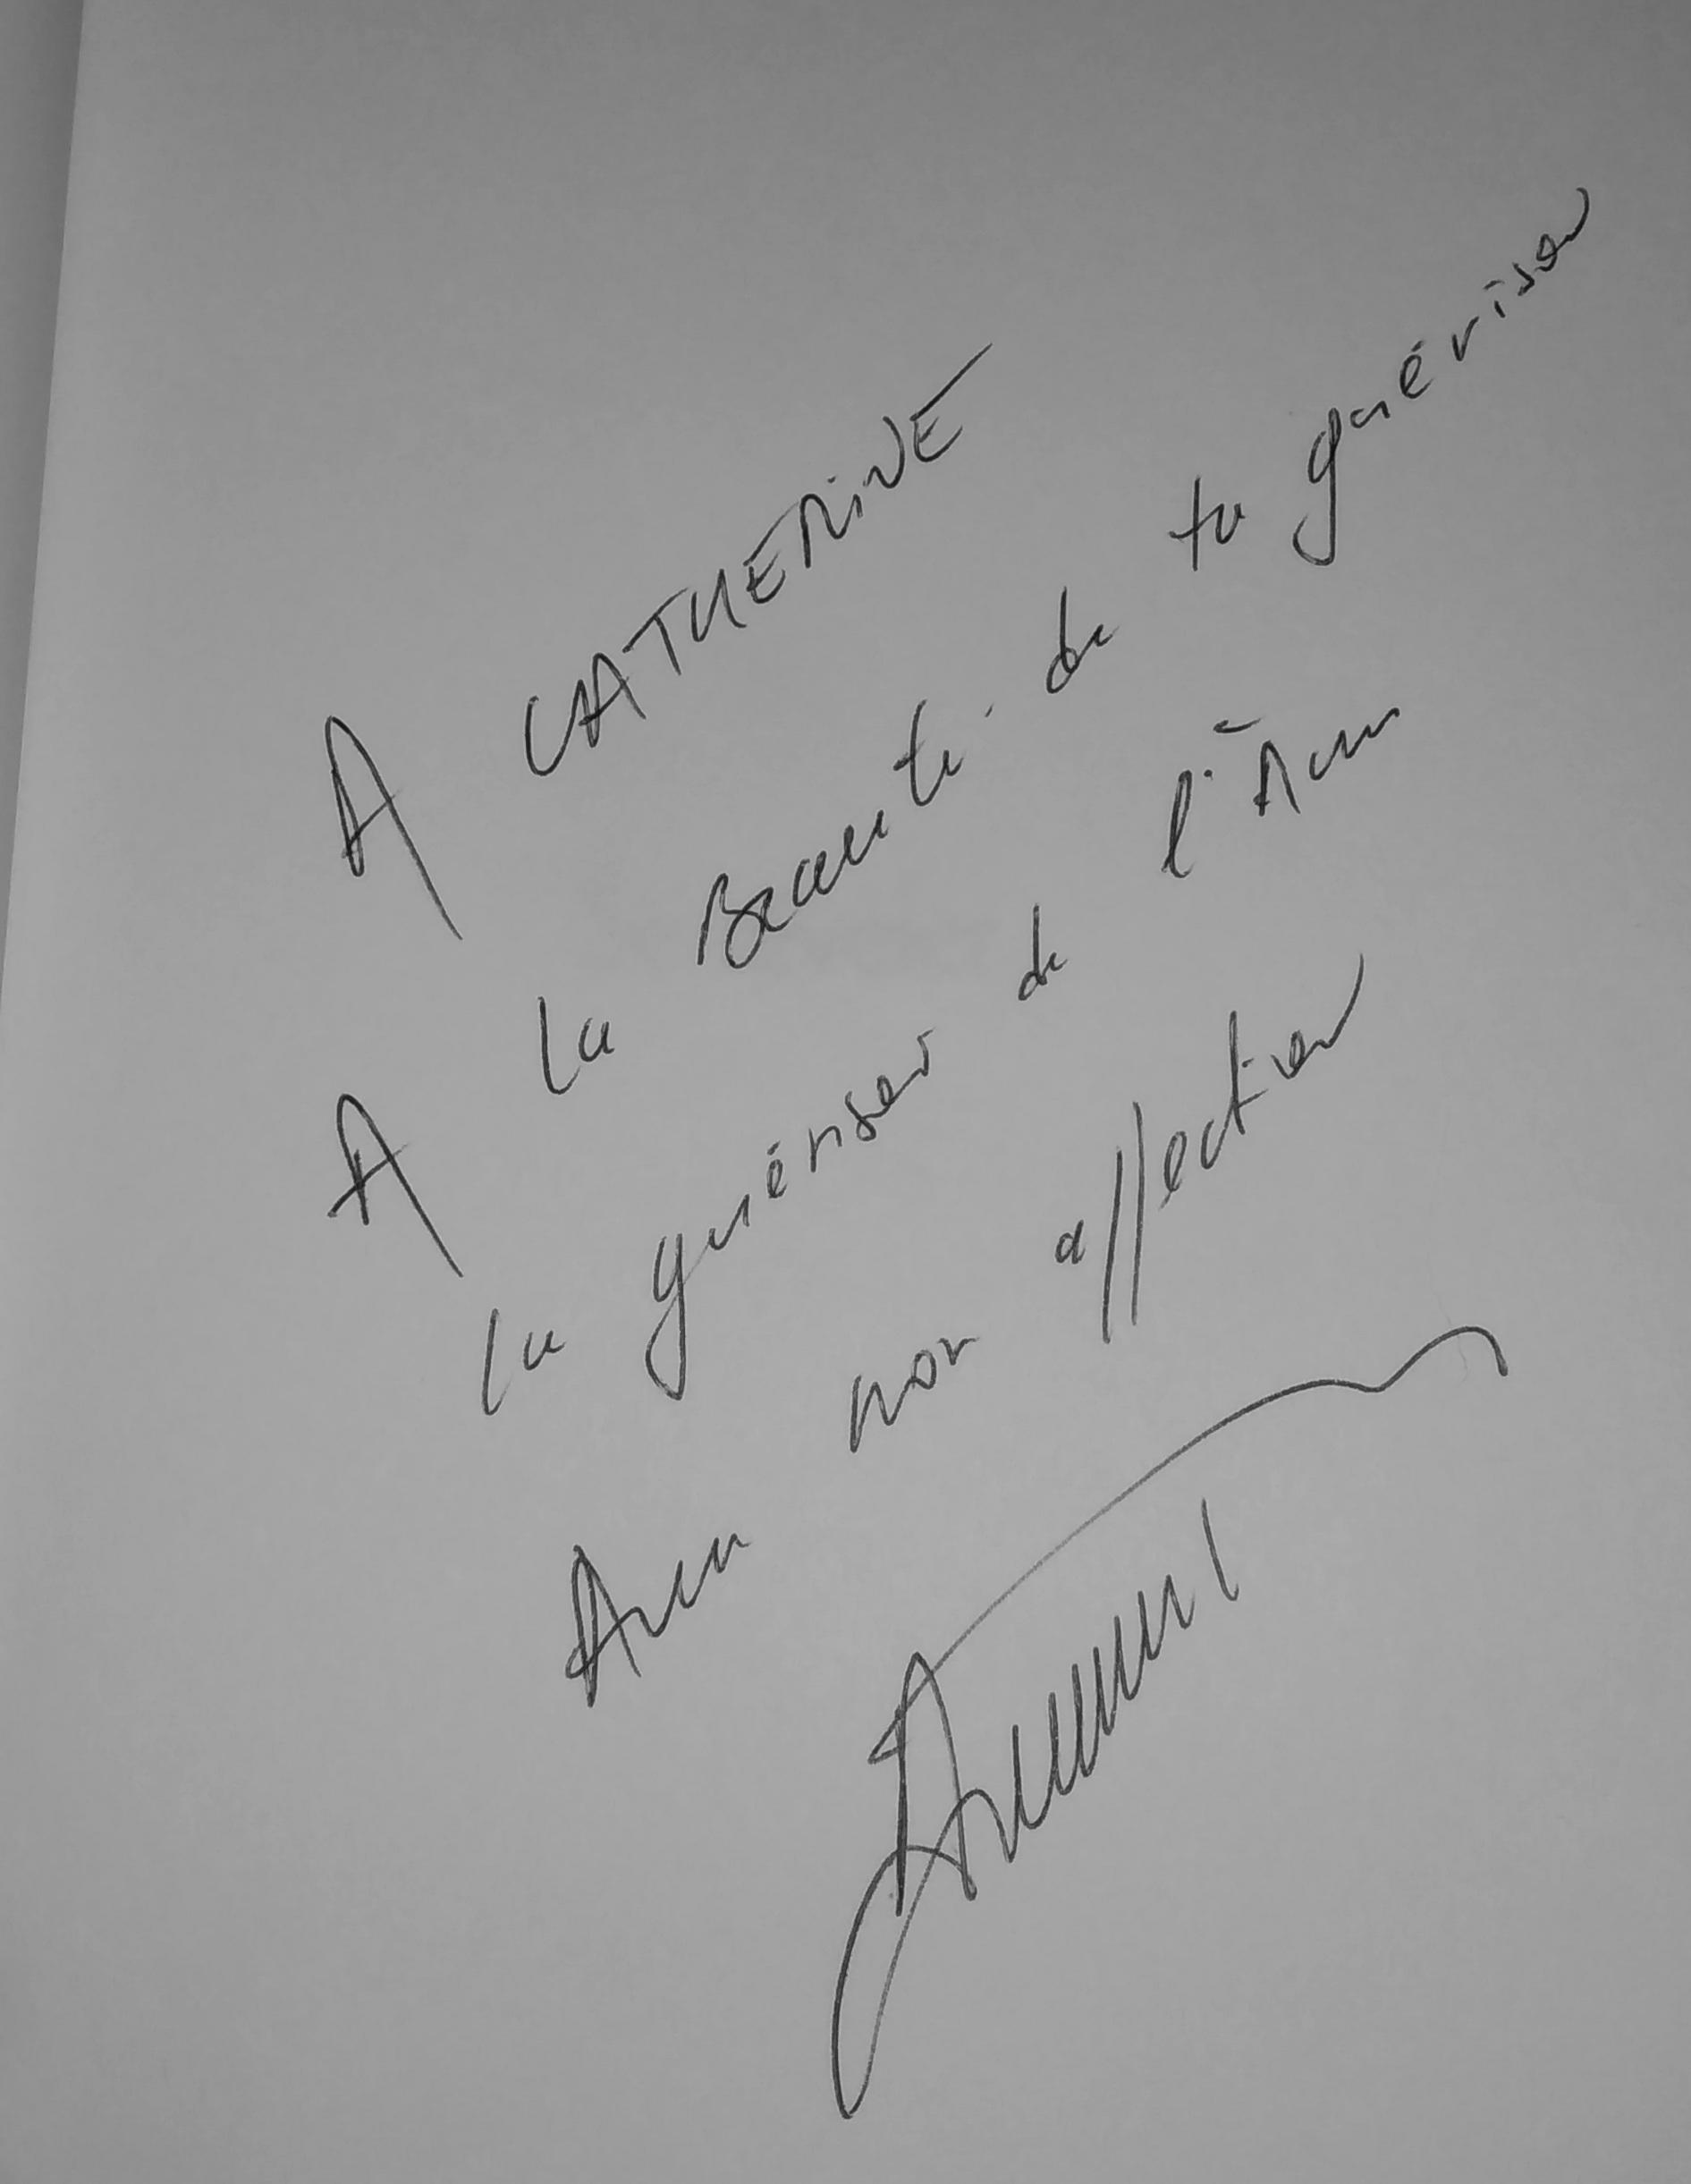 A CATHERINE
A la Beauté de ta guérison
la guérison de l'Âme
Avec mon affection